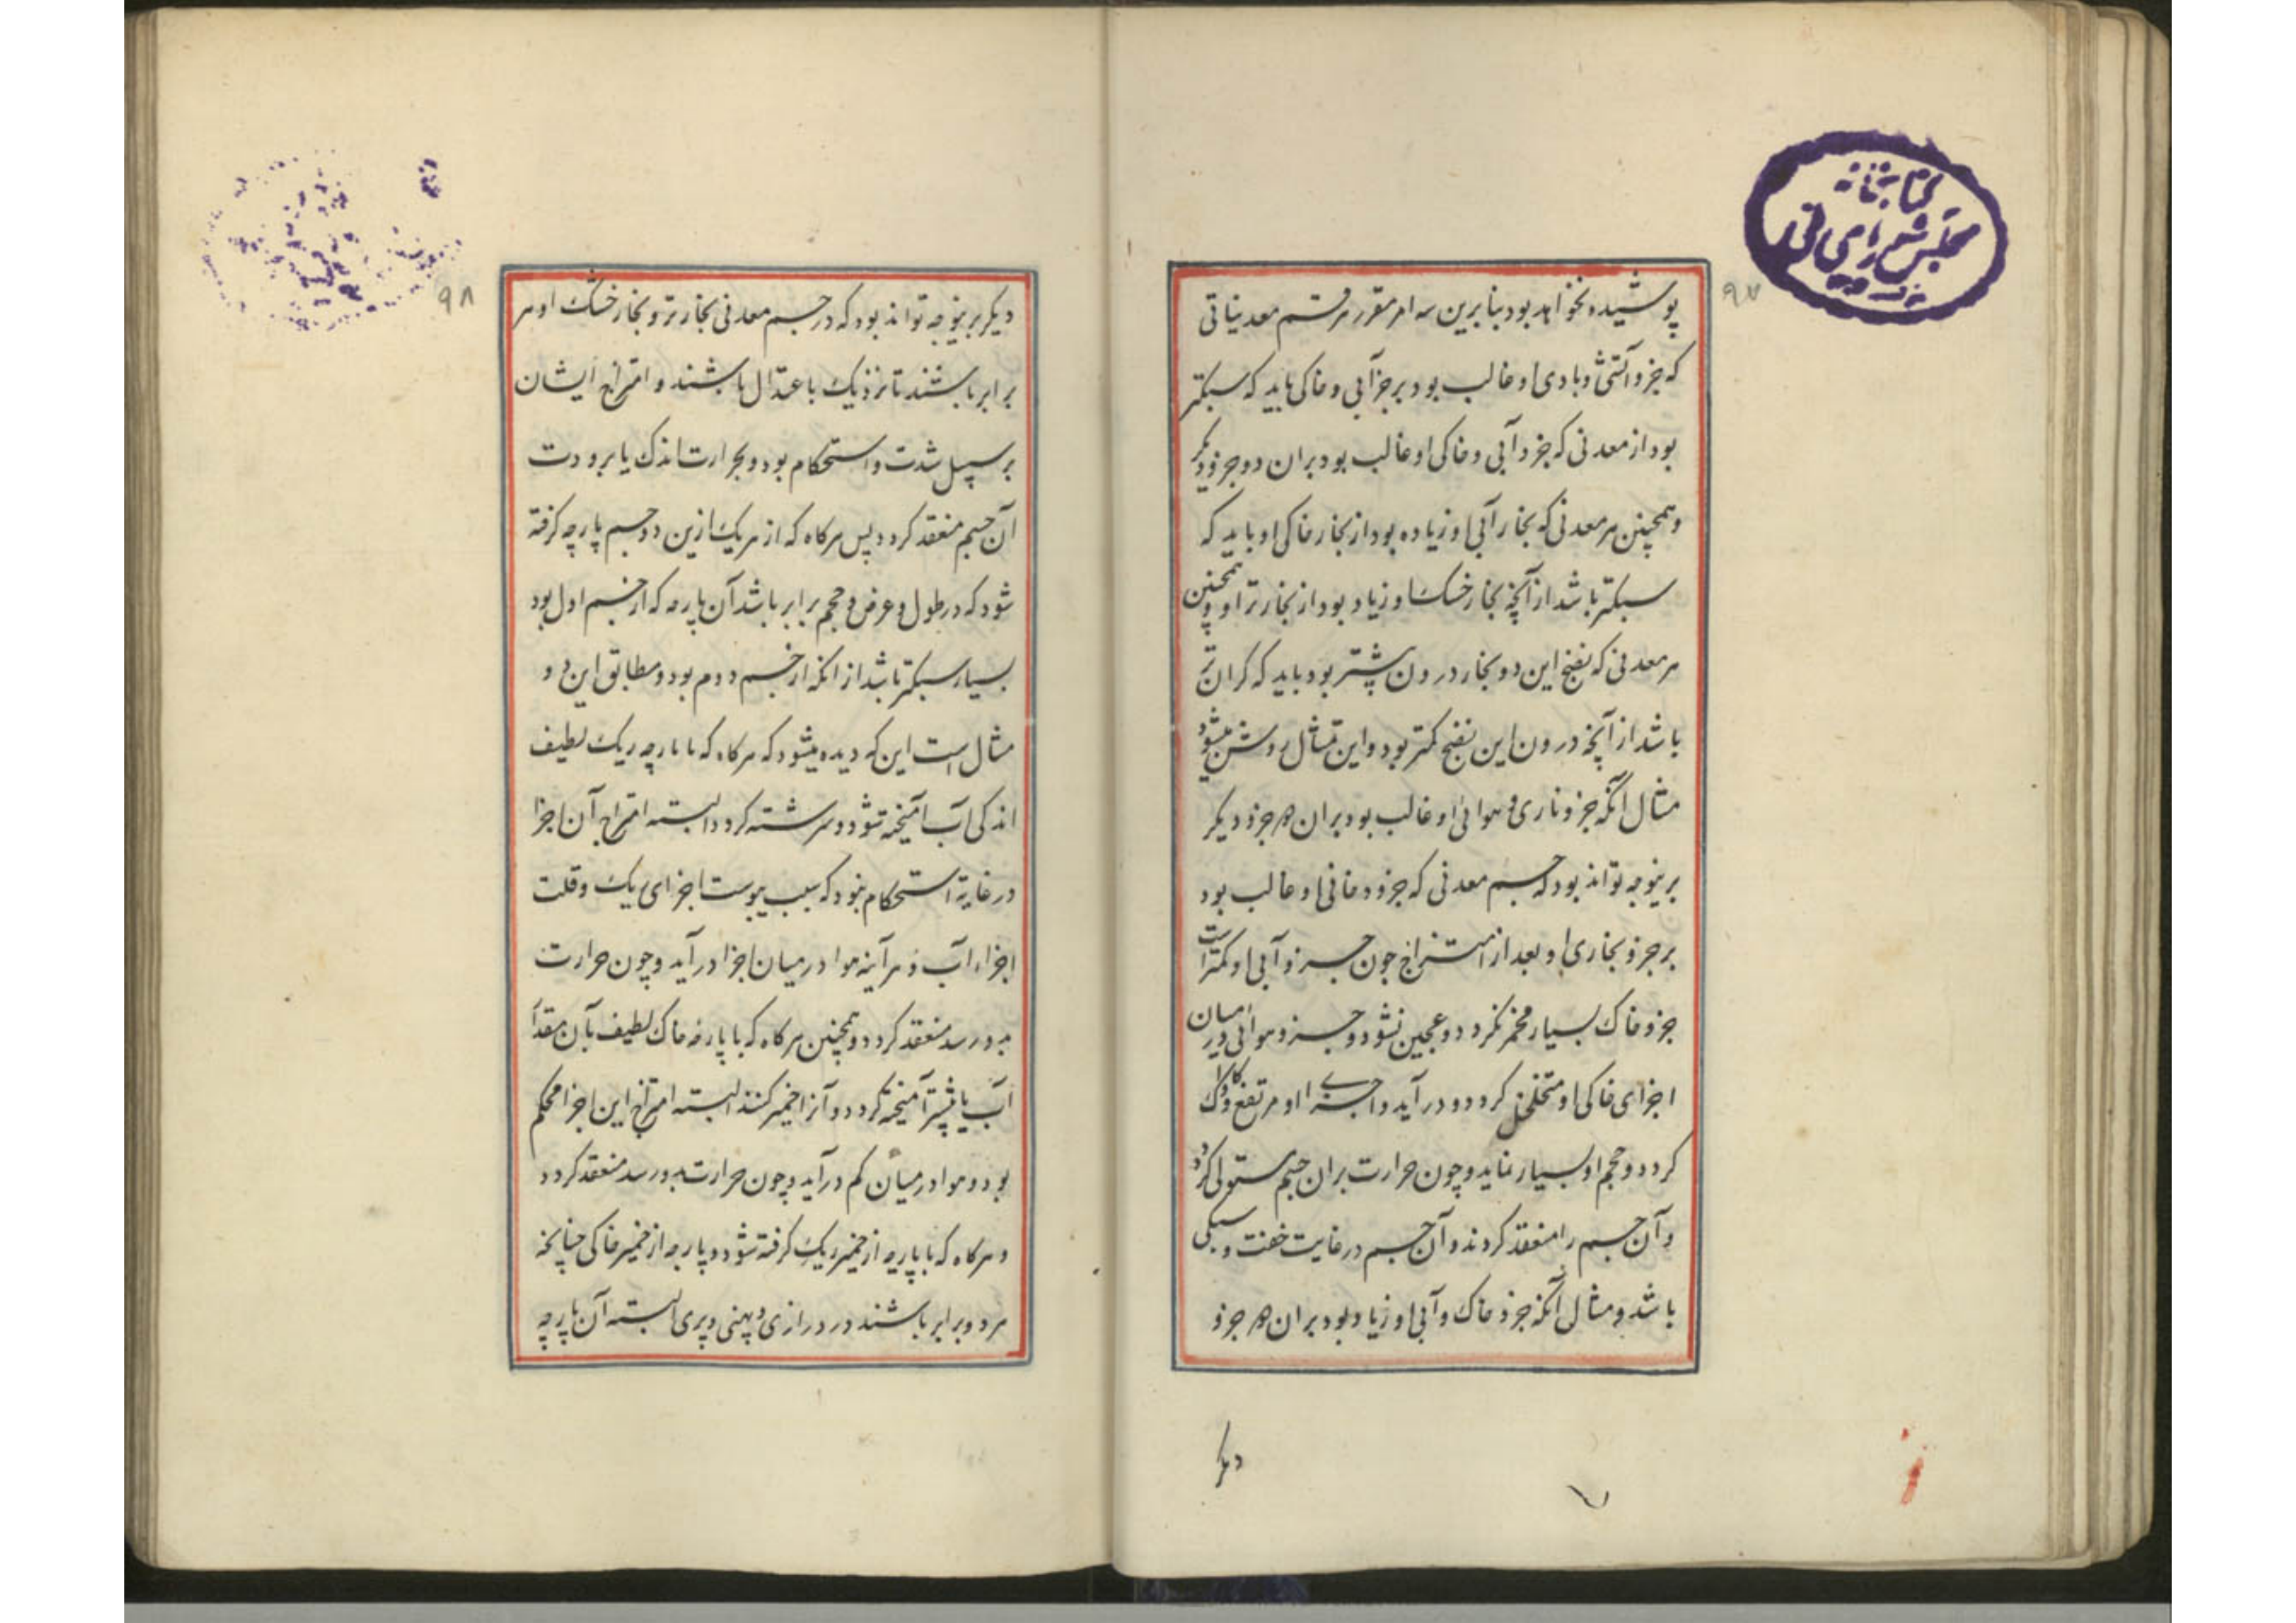 کتابخانه
مجلس شورای ملی
۹۷
پوشیده نخواهد بود بنابرین سه امر مقرر هر قسم معدنیاتی
که جزو آتشی و بادی او غالب بود بر جزو آبی و خاکی باید که سبکتر
بود از معدنی که جزو آبی و خاکی او غالب بود بران دو جزو دیگر
و همچنین هر معدنی که بخار آبی او زیاده بود از بخار خاکی او باید که
سبکتر باشد از آنچه بخار خشک او زیاد بود از بخار تر او و همچنین
هر معدنی که نضج این دو بخار درون بیشتر بود باید که کران تر
باشد از آنچه درون این نضج کمتر بود و این تمثال روشن میشود
مثال آنکه جزو ناری و هوائی او غالب بود بران دو جزو دیکر
برینوجه تواند بود که جسم معدنی که جزو دخانی او غالب بود
بر جزو بخاری او بعد از امتزاج چون جزو آبی او کمتر است
جزو خاک بسیار مخمر نکردد و عجین نشود و جزو هوائی در میان
اجزای خاکی او متخلخل کردد و در آید و اجزای او مرتفع و کاواک
کردد و حجم او بسیار نماید و چون حرارت بران جسم مستولی کردد
و آن جسم را منعقد کردند و آن جسم در غایت خفت و سبکی
باشد و مثال آنکه جزو خاک و آبی او زیاد بود بران دو جزو
دیکر
۹۸
دیکر برینوجه تواند بود که در جسم معدنی بخار تر و بخار خشک او هر
برابر باشند تا نزدیک باعتدال باشند و امتزاج ایشان
بر سبیل شدت و استحکام بود و بحرارت اندک یا برودت
آن جسم منعقد کردد پس هر کاه که از هر یک ازین دو جسم پارچه کرفته
شود که در طول و عرض و حجم برابر باشد آن پارچه که از جسم اول بود
بسیار سبکتر باشد از انکه از جسم دوم بود و مطابق این دو
مثال است این که دیده میشود که هر کاه که با پارچه ریک لطیف
اندکی آب آمیخته شود و سرشته کردد البته امتزاج آن اجزا
در غایة استحکام نبود که سبب یبوست اجزای ریک و قلت
اجزاء آب و هر آینه هوا در میان اجزا در آید و چون حرارت
بدو رسد منعقد کردد و همچنین هر کاه که با پارچه خاک لطیف بآن مقدار
آب یا بیشتر آمیخته کردد و آنرا خمیر کنند البته امتزاج این اجزا محکم
بود و هوا در میان کم در آید و چون حرارت بدو رسد منعقد کردد
و هر کاه که با پارچه از خمیر ریک کرفته شود و پارچه از خمیر خاکی چنانچه
هر دو برابر باشند در درازی و پهنی و پری البته آن پارچه